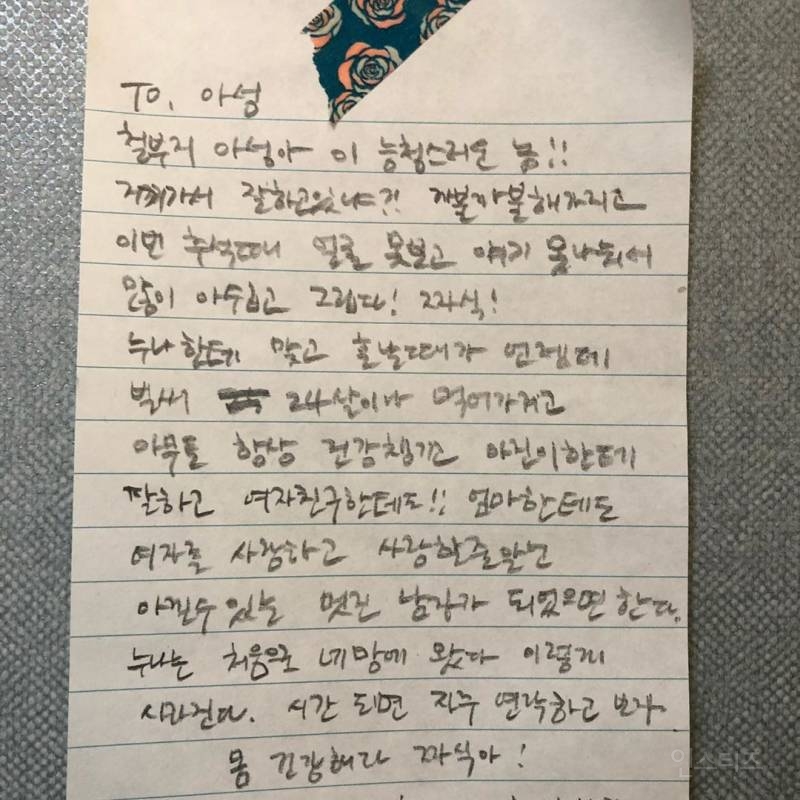 To. 아성
철부지 아성아 이 능청스러운 놈!!
거기가서 잘하고있냐?! 까불까불해가지고
이번 추석때 얼굴 못보고 얘기 못나눠서
많이 아쉽고 그립다! 짜식!
누나한테 맞고 혼날때가 언젠데
벌써 24살이나 먹어가지고
아무튼 항상 건강챙기고 아진이한테
잘하고 여자친구한테도!! 엄마한테도
여자를 사랑하고 사랑할줄알고
아낄수있는 멋진 남자가 되었으면 한다.
누나는 처음으로 네맘에 왔다 이렇게
사라진다. 시간 되면 자주 연락하고 보자.
몸 건강해라 짜식아!
인스티즈